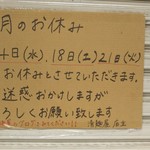 月のお休み
4日(水).18日(土)21日(火)
お休みとさせていただきます。
迷惑おかけしますが
ろしくお願い致します
店主